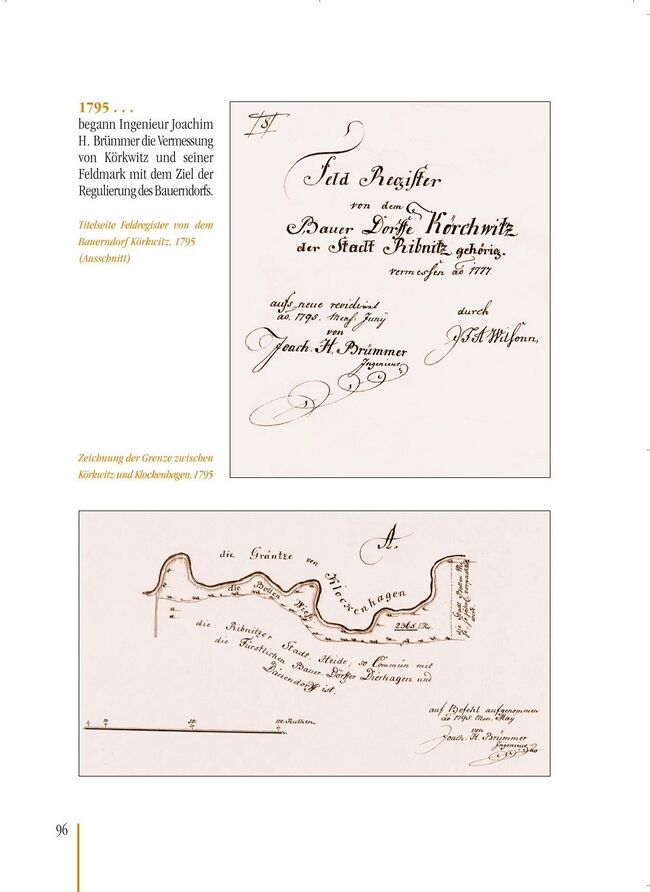 1795 . . .
begann Ingenieur Joachim
H. Brümmer die Vermessung
von Körkwitz und seiner
Feldmark mit dem Ziel der
Regulierung des Bauerndorfs.
Titelseite Feldregister von dem
Bauerndorf Körkwitz, 1795
(Ausschnitt)
Feld Register
von dem
Bauer Dorffe Körchwitz
der Stadt Ribnitz gehörig.
vermessen ao 1777.
aufs neue revidirt
ao. 1795. Mens. Juny
von
Joach. H. Brümmer
Ingenieur
durch
Zeichnung der Grenze zwischen
Körkwitz und Klockenhagen, 1795
A.
die Gräntze von Klockenhagen
die Bollen Wiese
2365
die Ribnitzer Stadt Heide; so Commun mit
die Fürstlichen Bauer Dörffer Dierhagen und
Dänendorff ist.
10. 50. 110. Ruthen.
auf Befehl aufgenommen
ao 1795. Men. May
von
Joach. H. Brümmer
Ingenieur
96